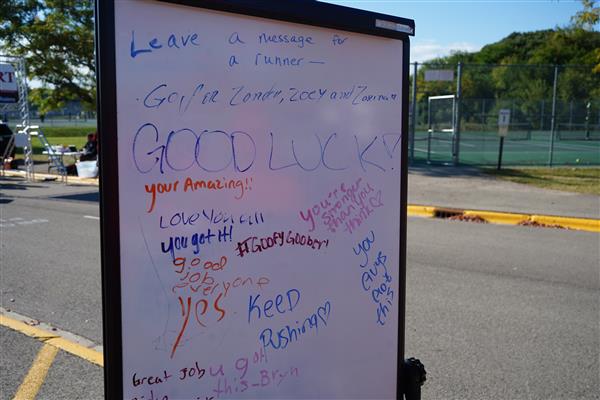 Leave a message for
a runner—
Go for Zander, Zoey and
GOOD LUCK!
your Amazing!!
LOVE YOU all
you got it!
#GOOFYGOOBER!
you're
stronger
than you
think♡
good
job
everyone
yes
KEED
Pushing♡
you
guys
got
this
Great job
u got
this-Bryn